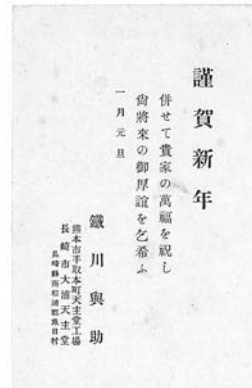 謹賀新年
併せて貴家の萬福を祝し
尙將來の御厚誼を乞希ふ
一月元旦
鐵川與助
熊本市手取本町天主堂工場
長崎市大浦天主堂
長崎縣南松浦郡魚目村